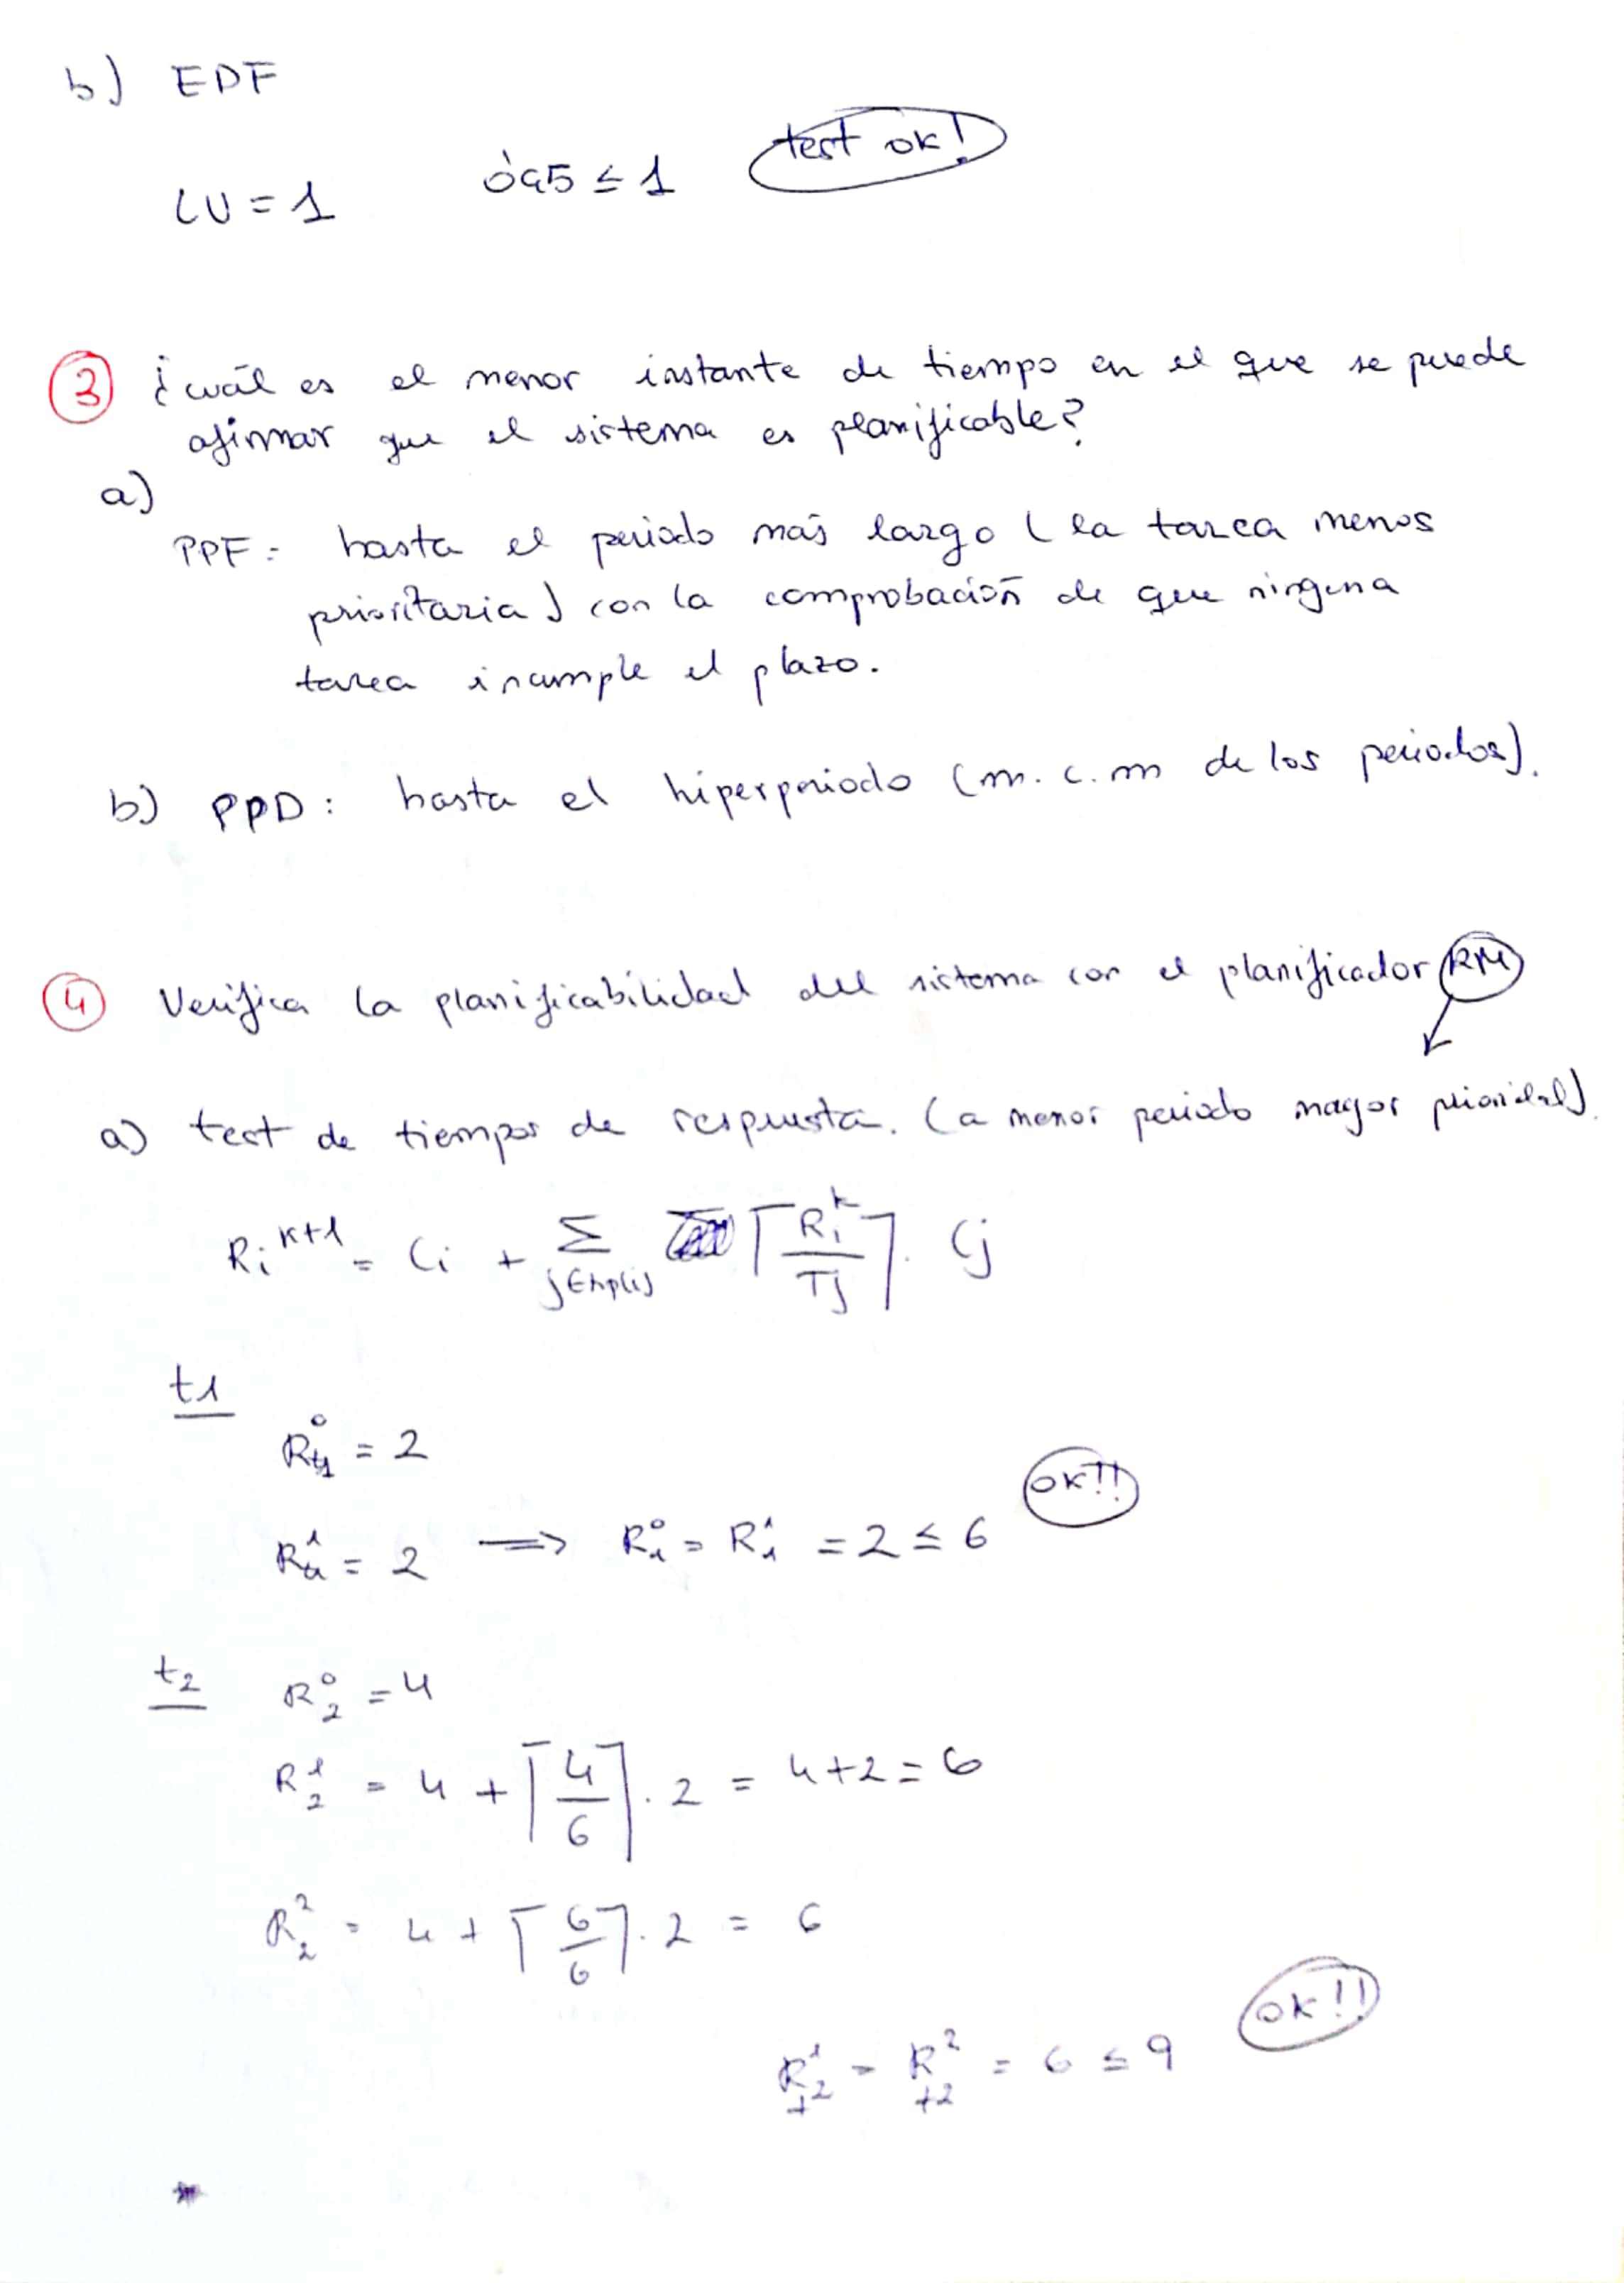 b) EDF
LU = 1 0'95 ≤ 1 test ok!
3 ¿cuál es el menor instante de tiempo en el que se puede
afirmar que el sistema es planificable?
a)
PPF: hasta el periodo más largo (la tarea menos
prioritaria) con la comprobación de que ninguna
tarea incumple el plazo.
b) PPD: hasta el hiperperiodo (m.c.m de los periodos).
4 Verifica la planificabilidad del sistema con el planificador RM
a) test de tiempos de respuesta. (a menor periodo mayor prioridad).
Ri^k+1 = Ci + Σ j∈hp(i) ⌈Ri^k / Tj⌉ · Cj
t1
Rt1^0 = 2
Rt1^1 = 2 ⟹ R1^0 = R1^1 = 2 ≤ 6 ok!!
t2 R2^0 = 4
R2^1 = 4 + ⌈4/6⌉ · 2 = 4+2 = 6
R2^2 = 4 + ⌈6/6⌉ · 2 = 6
Rt2^1 = Rt2^2 = 6 ≤ 9 ok!!